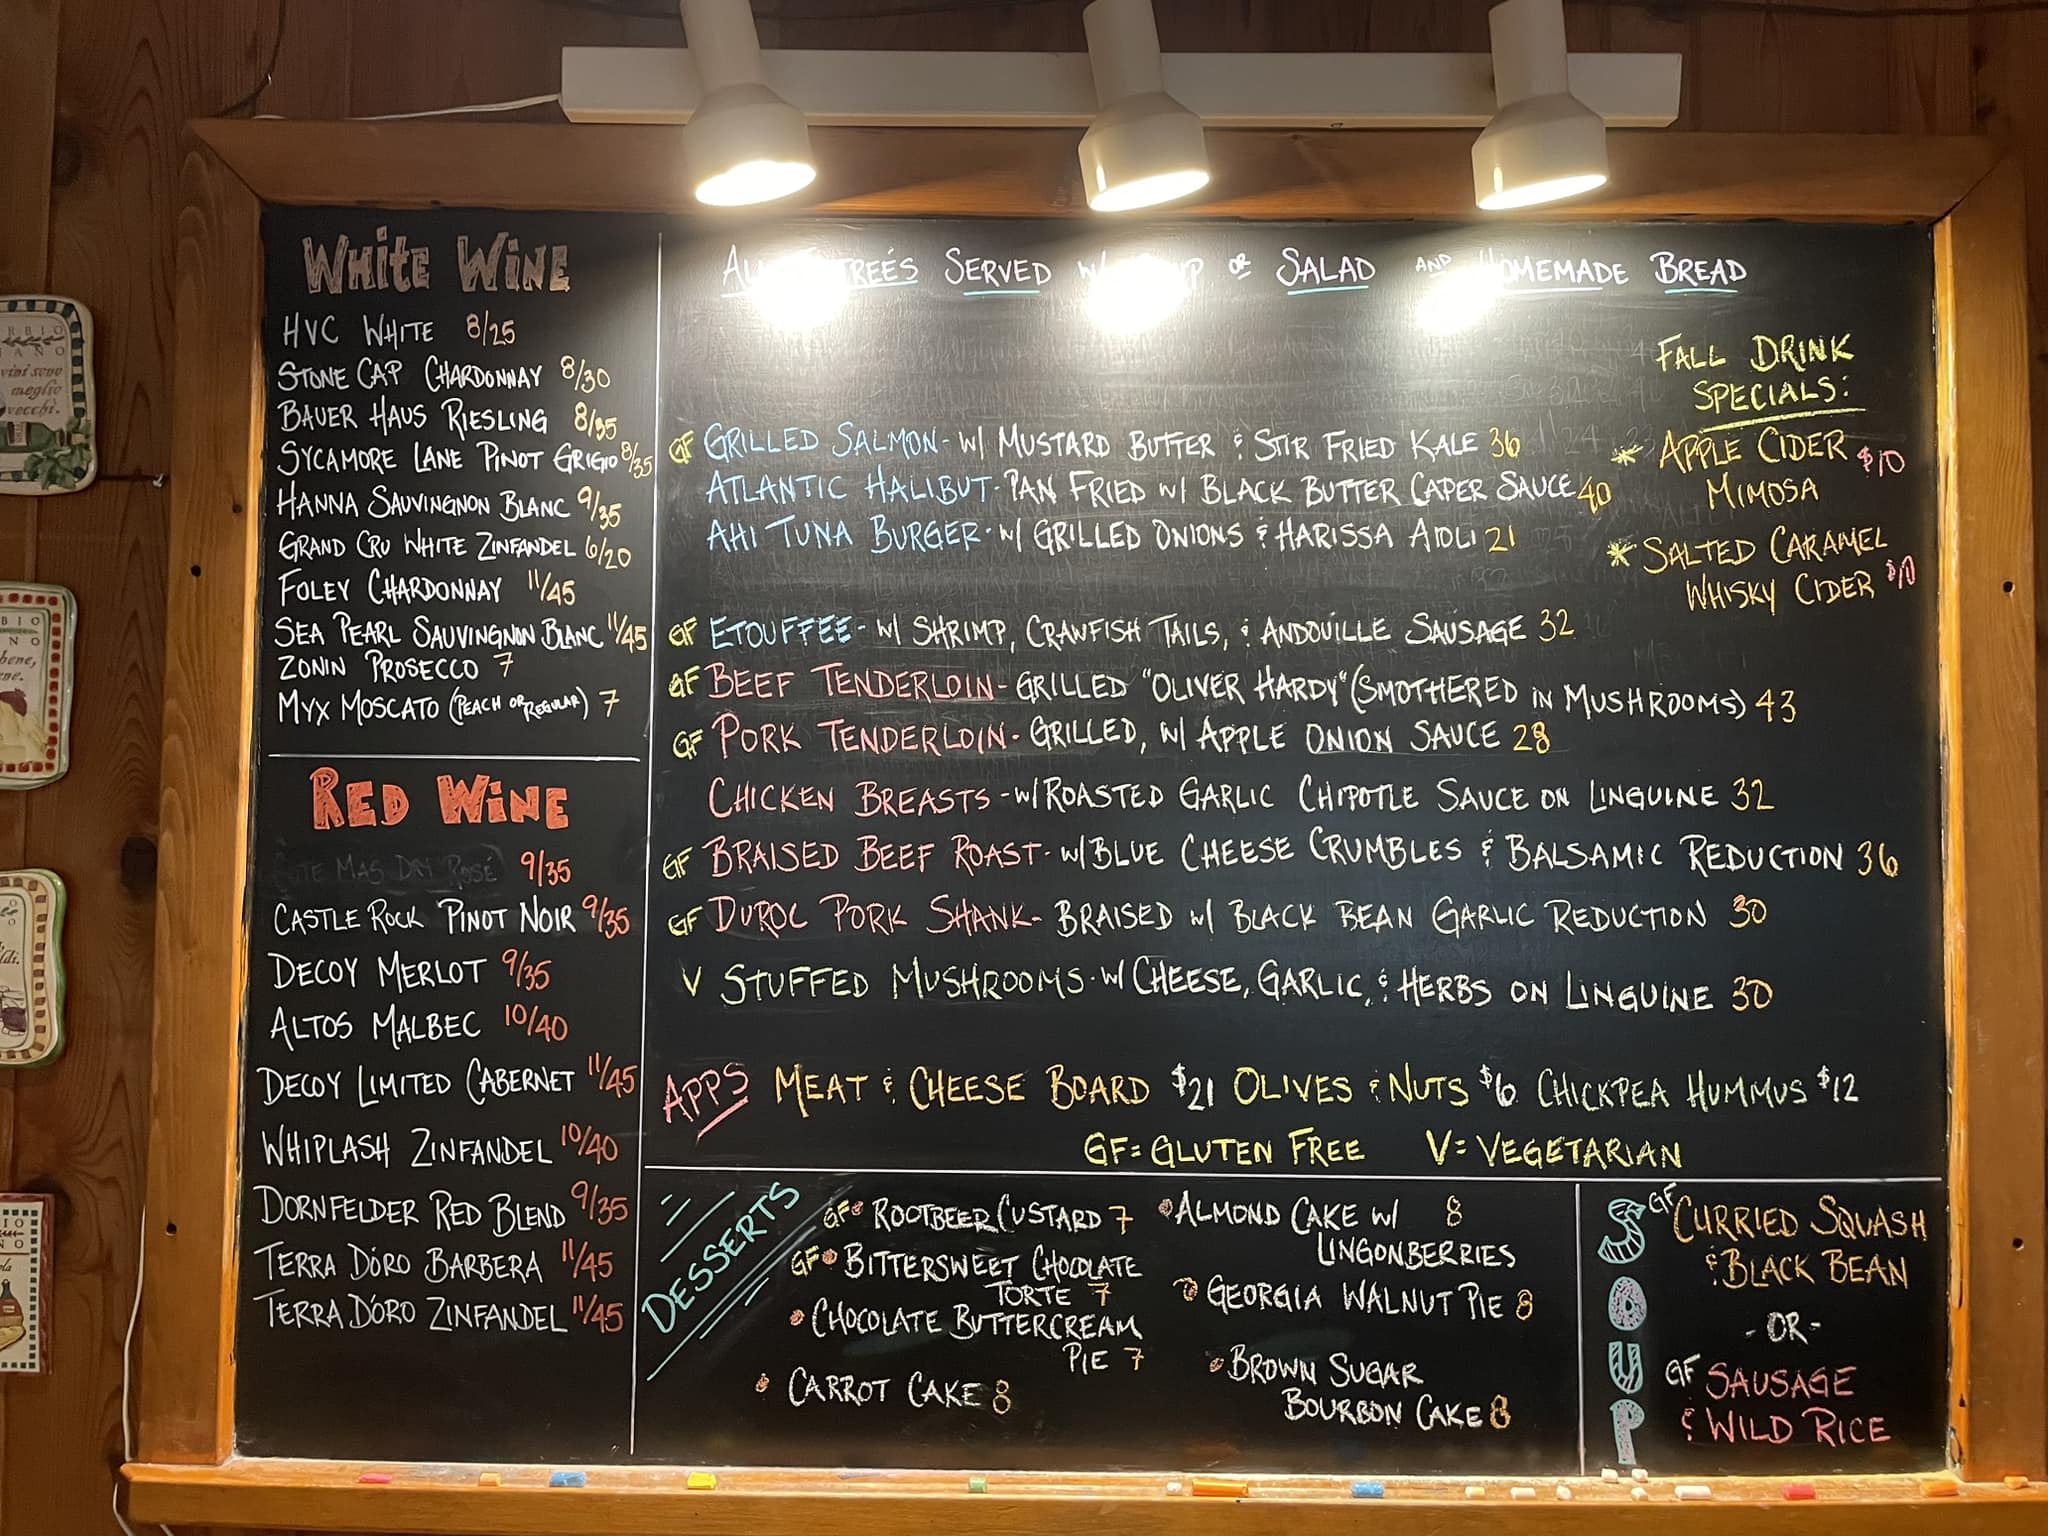 WHITE WINE
HVC WHITE 8/25
STONE CAP CHARDONNAY 8/30
BAUER HAUS RIESLING 8/35
SYCAMORE LANE PINOT GRIGIO 8/35
HANNA SAUVINGNON BLANC 9/35
GRAND CRU WHITE ZINFANDEL 6/20
FOLEY CHARDONNAY 11/45
SEA PEARL SAUVINGNON BLANC 11/45
ZONIN PROSECCO 7
MYX MOSCATO (PEACH OR REGULAR) 7
RED WINE
MAS DRY ROSÉ 9/35
CASTLE ROCK PINOT NOIR 9/35
DECOY MERLOT 9/35
ALTOS MALBEC 10/40
DECOY LIMITED CABERNET 11/45
WHIPLASH ZINFANDEL 10/40
DORNFELDER RED BLEND 9/35
TERRA D'ORO BARBERA 11/45
TERRA D'ORO ZINFANDEL 11/45
SERVED OR SALAD AND HOMEMADE BREAD
FALL DRINK
SPECIALS:
* APPLE CIDER $10
MIMOSA
* SALTED CARAMEL
WHISKY CIDER $10
GF GRILLED SALMON - W/ MUSTARD BUTTER & STIR FRIED KALE 36
ATLANTIC HALIBUT - PAN FRIED W/ BLACK BUTTER CAPER SAUCE 40
AHI TUNA BURGER - W/ GRILLED ONIONS & HARISSA AIOLI 21
GF ETOUFFEE - W/ SHRIMP, CRAWFISH TAILS, & ANDOUILLE SAUSAGE 32
GF BEEF TENDERLOIN - GRILLED "OLIVER HARDY" (SMOTHERED IN MUSHROOMS) 43
GF PORK TENDERLOIN - GRILLED, W/ APPLE ONION SAUCE 28
CHICKEN BREASTS - W/ ROASTED GARLIC CHIPOTLE SAUCE ON LINGUINE 32
GF BRAISED BEEF ROAST - W/ BLUE CHEESE CRUMBLES & BALSAMIC REDUCTION 36
GF DUROC PORK SHANK - BRAISED W/ BLACK BEAN GARLIC REDUCTION 30
V STUFFED MUSHROOMS - W/ CHEESE, GARLIC, & HERBS ON LINGUINE 30
APPS MEAT & CHEESE BOARD $21 OLIVES & NUTS $6 CHICKPEA HUMMUS $12
GF = GLUTEN FREE V = VEGETARIAN
DESSERTS
GF • ROOTBEER CUSTARD 7
GF • BITTERSWEET CHOCOLATE
TORTE 7
• CHOCOLATE BUTTERCREAM
PIE 7
• CARROT CAKE 8
• ALMOND CAKE W/ 8
LINGONBERRIES
• GEORGIA WALNUT PIE 8
• BROWN SUGAR
BOURBON CAKE 8
SOUP
GF CURRIED SQUASH
& BLACK BEAN
- OR -
GF SAUSAGE
& WILD RICE
vini sono
meglio
vecchi.